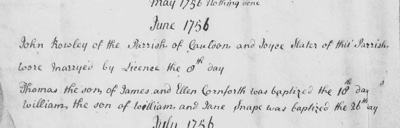 May 1756 Nothing done
June 1756
John Rowley of the Parrish of Coulson and Joyce Slater of this Parrish
were Marryed by Licence the 8th day
Thomas the son of James and Ellen Cornforth was baptized the 10th day
William, the son of William and Jane Snape was baptized the 26th day
July 1756